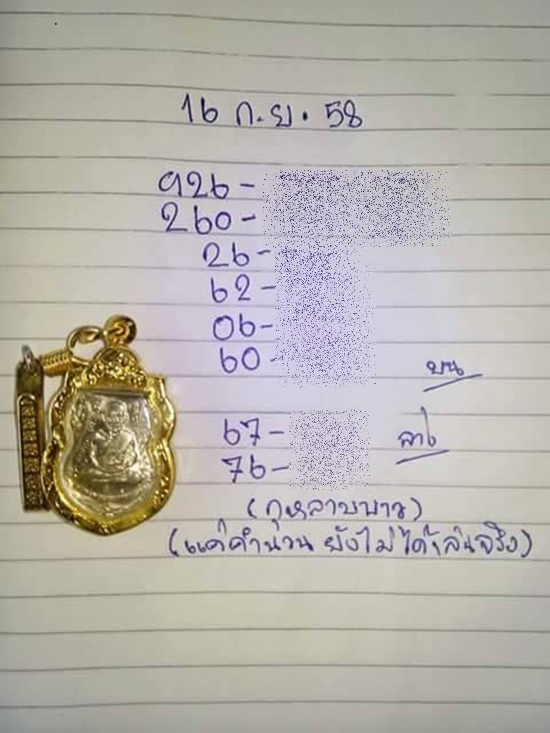 16 ก.ย. 58
926-
260-
26-
62-
06-
60-
บน
67-
ล่าง
76-
(กุหลาบขาว)
(แค่คำนวน ยังไม่ได้เล่นจริง)